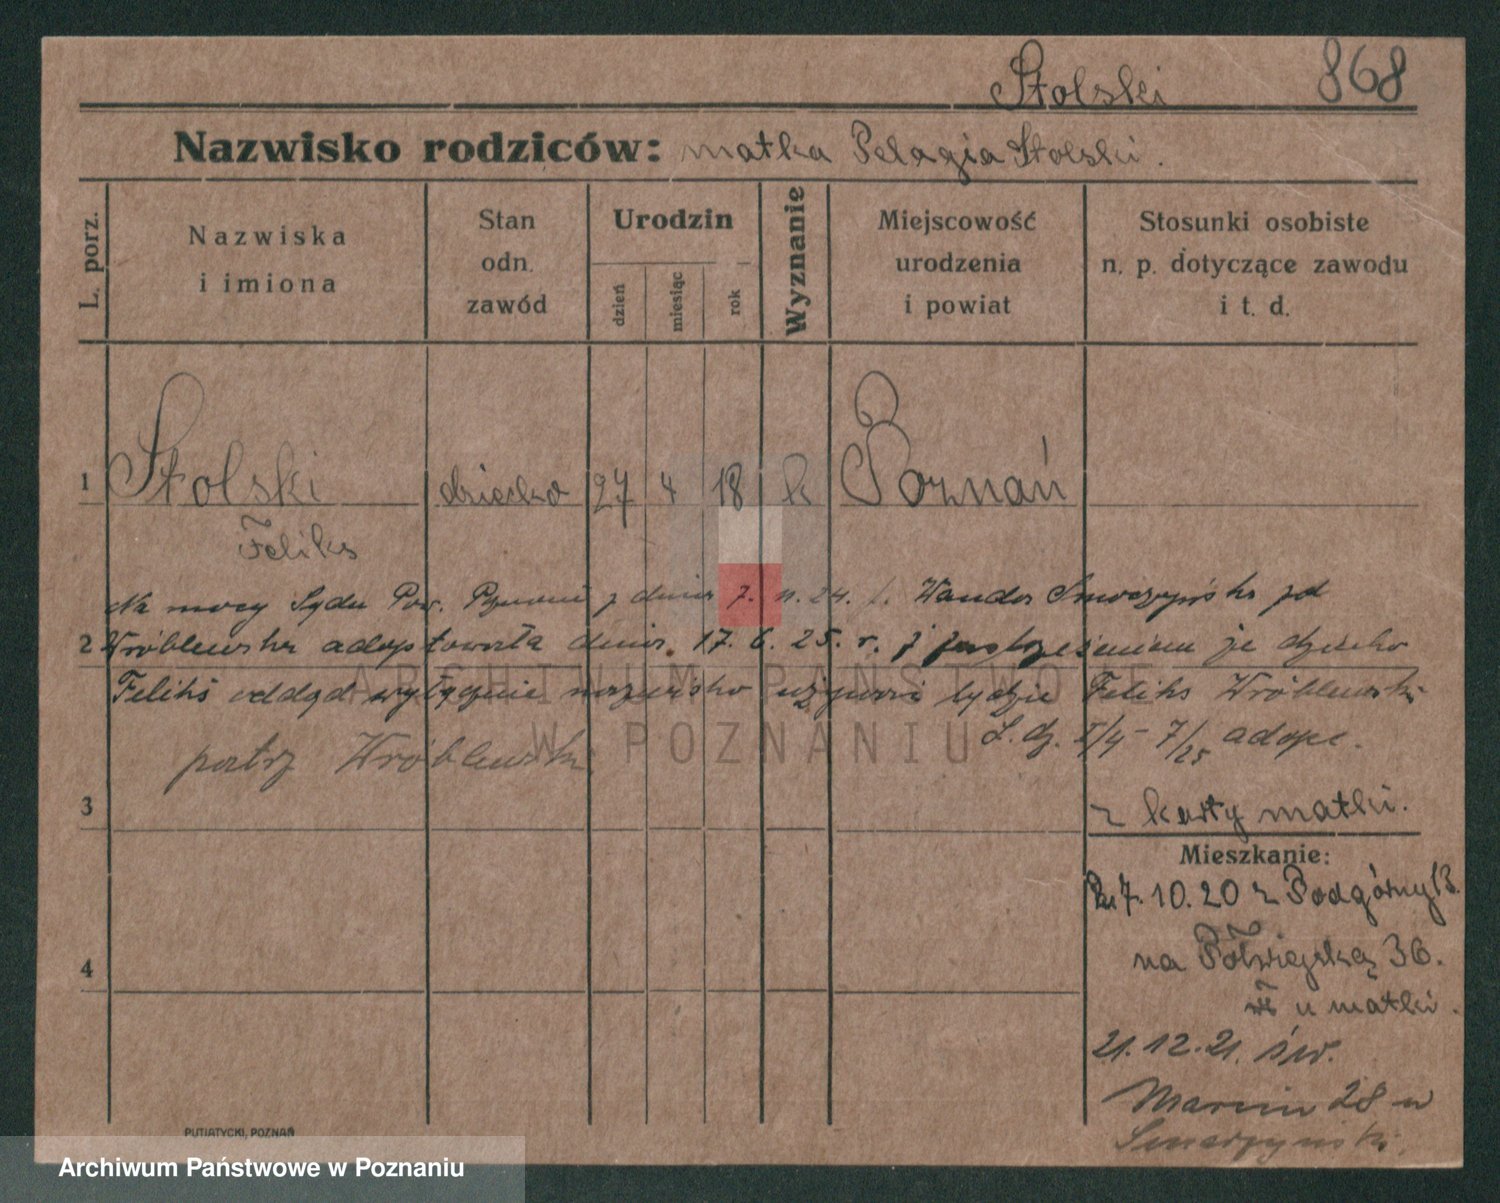 Stolski 868
Nazwisko rodziców: matka Pelagia Stolski.
L. porz.
Nazwiska
i imiona
Stan
odn.
zawód
Urodzin
dzień
miesiąc
rok
Wyznanie
Miejscowość
urodzenia
i powiat
Stosunki osobiste
n. p. dotyczące zawodu
i t. d.
1 Stolski dziecko 27 4 18 k Poznań
Feliks
Na mocy Sądu Pow. Poznani z dnia 7. 11. 24. Wanda zd
2 Wróblewska adoptowała dnia 17. 6. 25. r. z zastrzeżeniem że dziecko
Feliks odtąd wyłącznie nazwisko używać będzie Feliks Wróblewski
L. dz. I/4 - 7/25 adopc.
patrz Wróblewski
3
z karty matki.
Mieszkanie:
7. 10. 20 z Podgórny 13.
na Półwiejską 36.
4
u matki.
21. 12. 21. św.
Marcin 28 u
PUTIATYCKI, POZNAŃ
ARCHIWUM PAŃSTWOWE
W POZNANIU
Archiwum Państwowe w Poznaniu